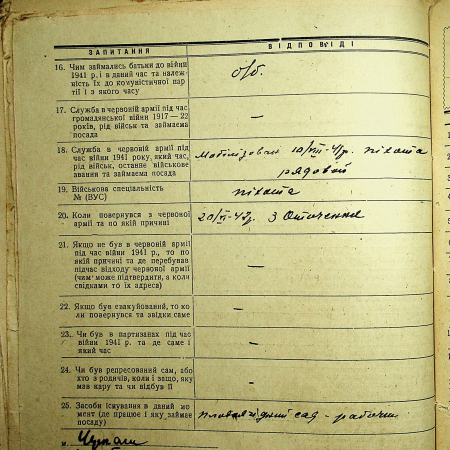 ЗАПИТАННЯ
ВІДПОВІДІ
16. Чим займались батьки до війни
1941 р. і в даний час та належ-
ність їх до комуністичної пар
тії і з якого часу
б/б.
17. Служба в червоній армії під час
громадянської війни 1917—22
років, рід військ та займаєма
посада
—
18. Служба в червоній армії під
час війни 1941 року, який час,
рід військ, останнє військове
звання та займаєма посада
Мобілізований 10/VII-41р. піхота
рядовой
19. Військова спеціальність
№ (ВУС)
піхота
20. Коли повернувся з червоної
армії та по якій причині
з Оточення
21. Якщо не був в червоній армії
під час війни 1941 р., то по
якій причині та де перебував
підчас відходу червоної армії
(чим може підтвердити, а коли
свідками то їх адреса)
—
22. Якщо був евакуйований, то ко
ли повернувся та звідки саме
—
23. Чи був в партизанах під час
війни 1941 р. та де саме і
який час
—
24. Чи був репресований сам, або
хто з родичів, коли і защо, яку
мав кару та чи відбув її
—
25. Засоби існування в даний мо
мент (де працює і яку займає
посаду)
сад - рабочий
м.